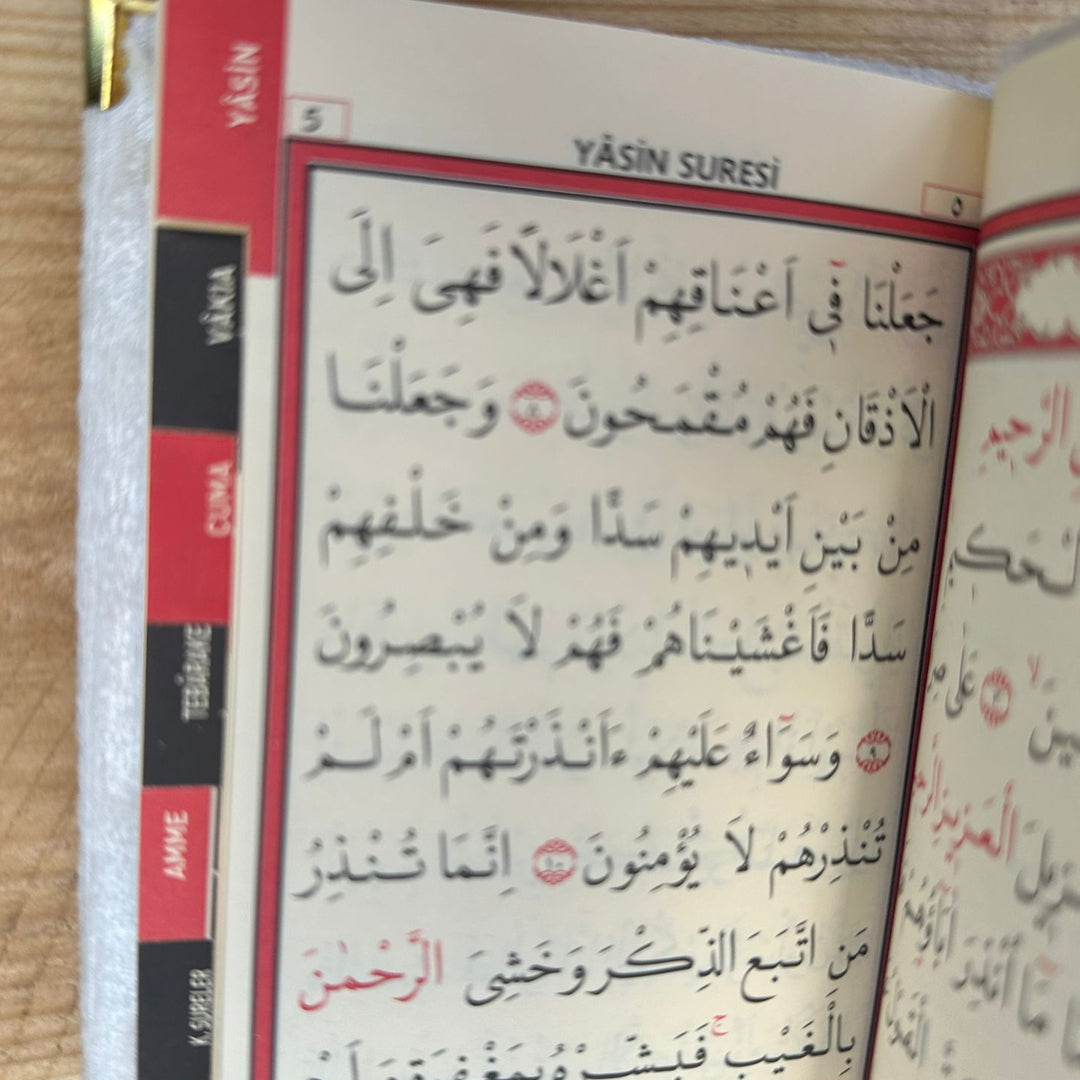 YÂSİN
VÂKIA
CUMA
TEBÂRAKE
AMME
K.SURELER
5
YÂSİN SURESİ
٥
جَعَلْنَا فٓي اَعْنَاقِهِمْ اَغْلَالًا فَهِىَ اِلَى
الْاَذْقَانِ فَهُمْ مُقْمَحُونَ ٨ وَجَعَلْنَا
مِنْ بَيْنِ اَيْدِيهِمْ سَدًّا وَمِنْ خَلْفِهِمْ
سَدًّا فَاَغْشَيْنَاهُمْ فَهُمْ لَا يُبْصِرُونَ
٩ وَسَوَٓاءٌ عَلَيْهِمْ ءَاَنْذَرْتَهُمْ اَمْ لَمْ
تُنْذِرْهُمْ لَا يُؤْمِنُونَ ١٠ اِنَّمَا تُنْذِرُ
مَنِ اتَّبَعَ الذِّكْرَ وَخَشِىَ الرَّحْمٰنَ
بِالْغَيْبِ ج فَبَشِّرْهُ بِمَغْفِرَةٍ
الرَّحِيمِ
عَلٰى